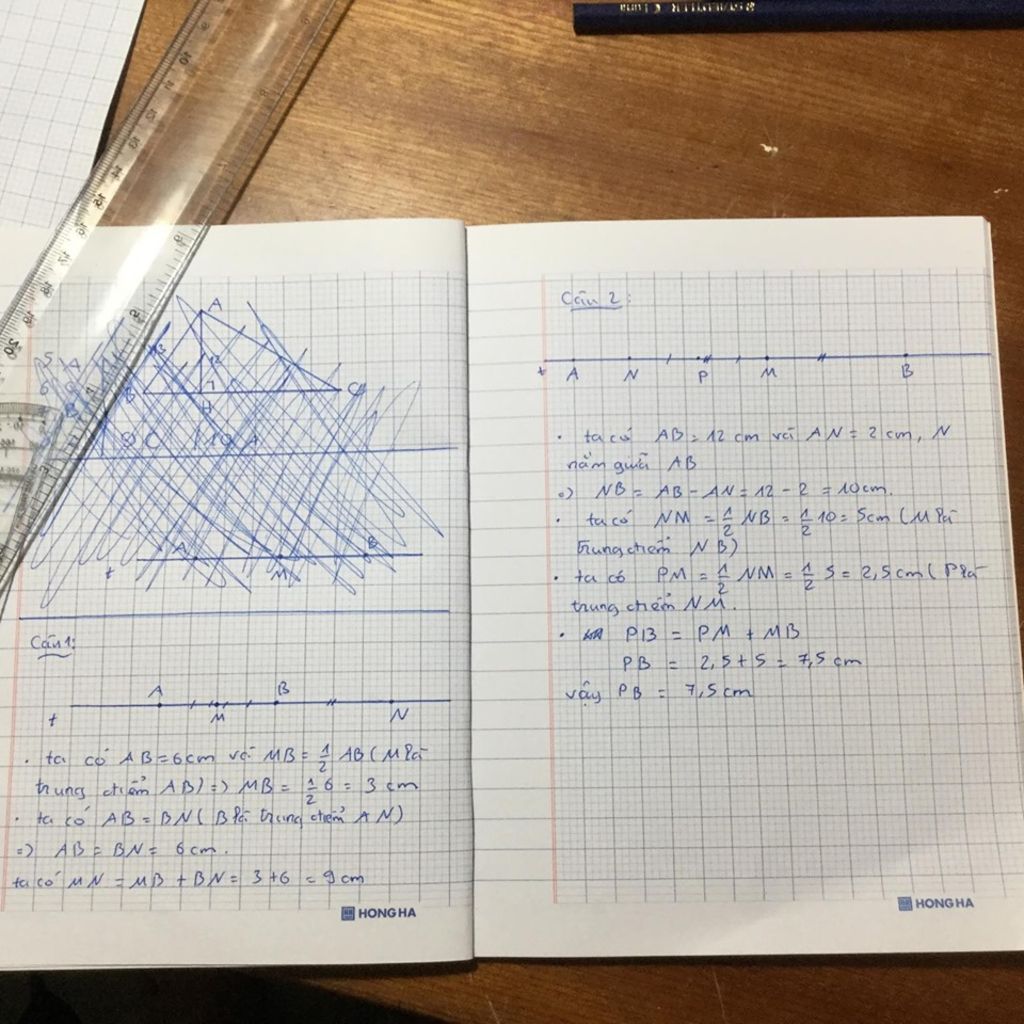 A
B
H
C
A
M
B
t
Câu 1:
A B
t M N
. ta có AB = 6cm và MB = 1/2 AB (M là
trung điểm AB) => MB = 1/2 6 = 3 cm
. ta có AB = BN ( B là trung điểm AN)
=> AB = BN = 6cm.
ta có MN = MB + BN = 3+6 = 9cm
HONG HA
Câu 2:
t A N P M B
. ta có AB = 12 cm và AN = 2 cm, N
nằm giữa AB
=> NB = AB - AN = 12 - 2 = 10cm.
. ta có NM = 1/2 NB = 1/2 10 = 5cm ( M là
trung điểm NB)
. ta có PM = 1/2 NM = 1/2 5 = 2,5cm ( P là
trung điểm NM.
. PB = PM + MB
PB = 2,5+5 = 7,5 cm
vậy PB = 7,5cm
HONG HA